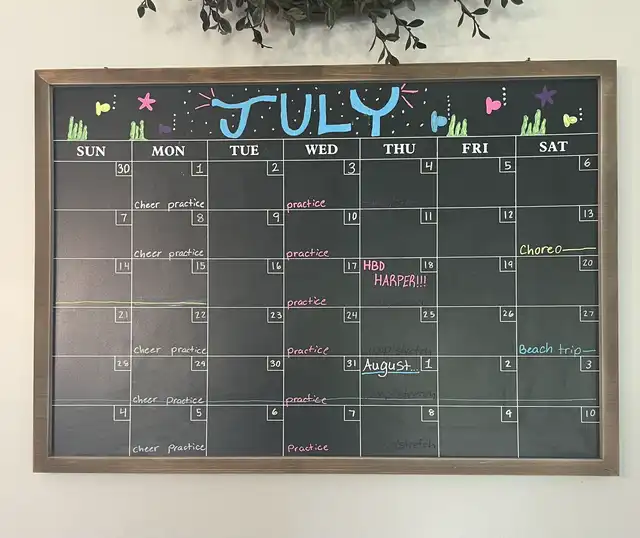 JULY
SUN MON TUE WED THU FRI SAT
30 1 2 3 4 5 6
cheer practice practice
7 8 9 10 11 12 13
cheer practice practice Choreo
14 15 16 17 18 19 20
HBD
HARPER!!!
practice
21 22 23 24 25 26 27
cheer practice practice Beach trip
28 29 30 31 August... 1 2 3
cheer practice practice stretch
4 5 6 7 8 9 10
cheer practice Practice stretch